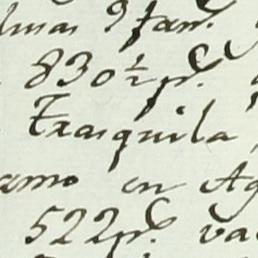 lmas 9 fan.
830½ p.
Trasquila,
amo en Ag
522 p. va